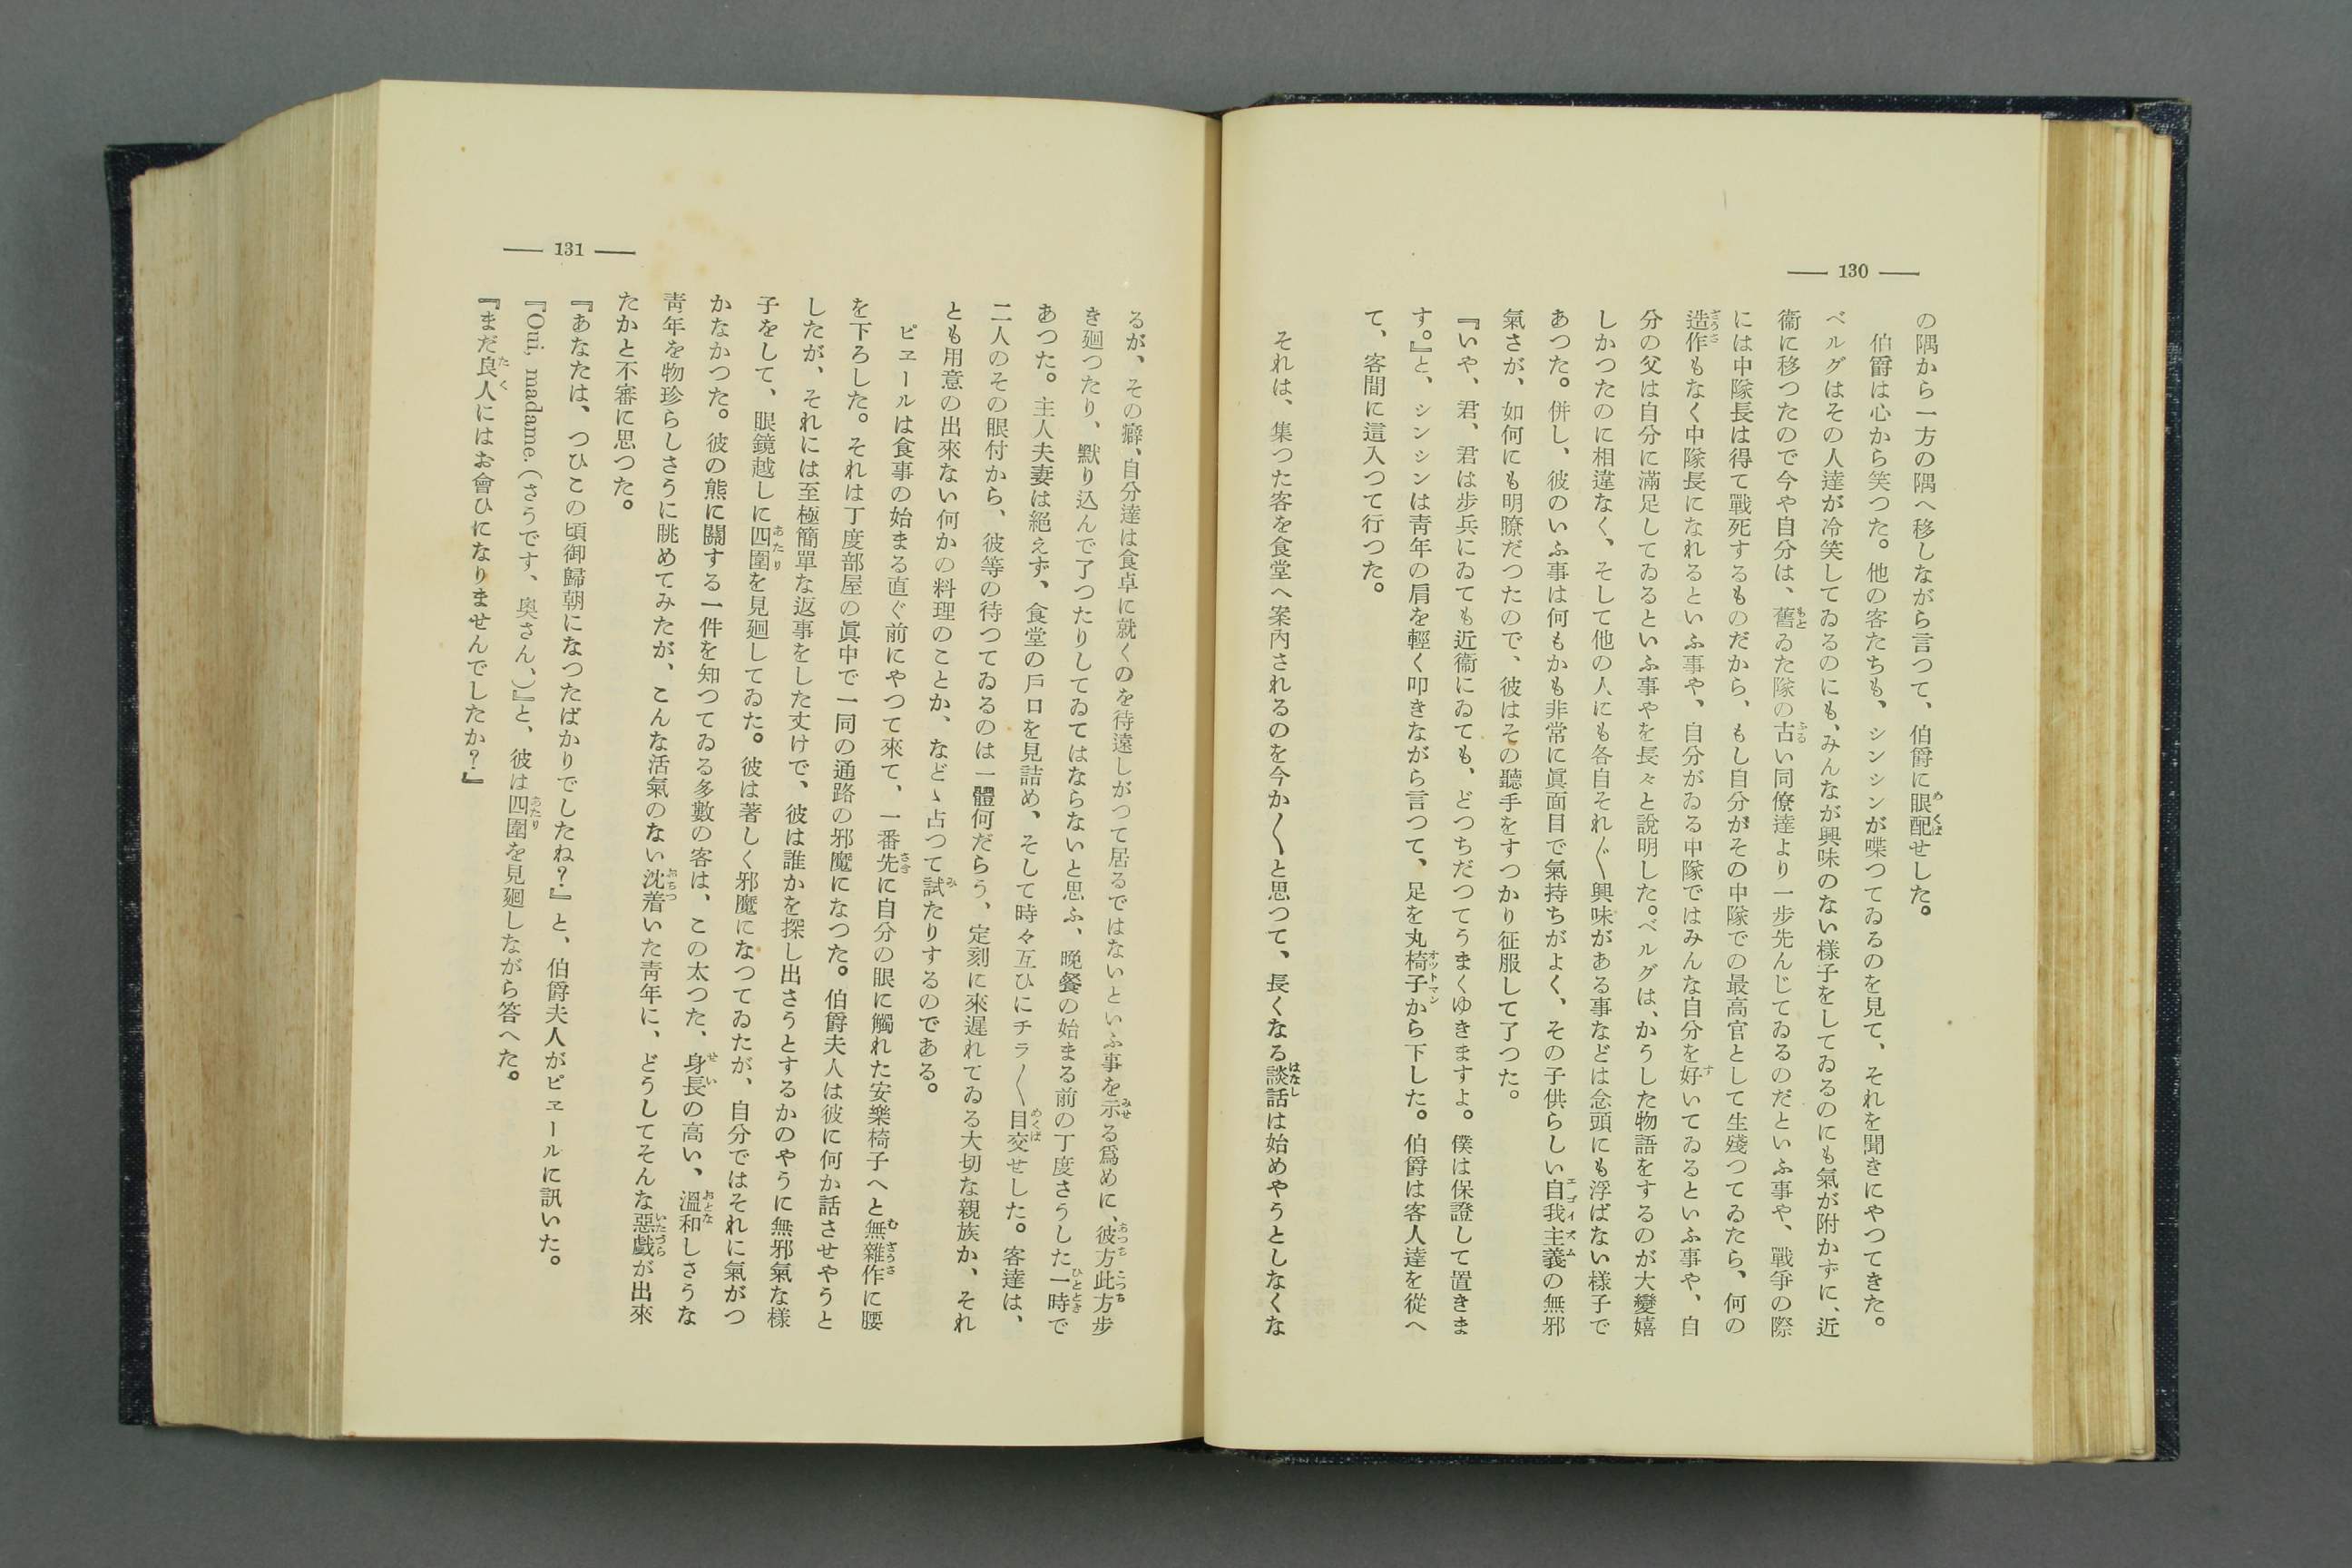 — 130 —
の隅から一方の隅へ移しながら言つて、伯爵に眼配せした。
伯爵は心から笑つた。他の客たちも、シンシンが喋つてゐるのを見て、それを聞きにやつてきた。
ベルグはその人達が冷笑してゐるのにも、みんなが興味のない様子をしてゐるのにも氣が附かずに、近
衞に移つたので今や自分は、舊ゐた隊の古い同僚達より一歩先んじてゐるのだといふ事や、戰爭の際
には中隊長は得て戰死するものだから、もし自分がその中隊での最高官として生殘つてゐたら、何の
造作もなく中隊長になれるといふ事や、自分がゐる中隊ではみんな自分を好いてゐるといふ事や、自
分の父は自分に滿足してゐるといふ事やを長々と説明した。ベルグは、かうした物語をするのが大變嬉
しかつたのに相違なく、そして他の人にも各自それ〴〵興味がある事などは念頭にも浮ばない様子で
あつた。併し、彼のいふ事は何もかも非常に眞面目で氣持ちがよく、その子供らしい自我主義の無邪
氣さが、如何にも明瞭だつたので、彼はその聽手をすつかり征服して了つた。
『いや、君、君は歩兵にゐても近衞にゐても、どつちだつてうまくゆきますよ。僕は保證して置きま
す。』と、シンシンは靑年の肩を輕く叩きながら言つて、足を丸椅子から下した。伯爵は客人達を從へ
て、客間に這入つて行つた。
それは、集つた客を食堂へ案内されるのを今か〱と思つて、長くなる談話は始めやうとしなくな
— 131 —
るが、その癖、自分達は食卓に就くのを待遠しがつて居るではないといふ事を示る爲めに、彼方此方歩
き廻つたり、默り込んで了つたりしてゐてはならないと思ふ、晩餐の始まる前の丁度さうした一時で
あつた。主人夫妻は絕えず、食堂の戸口を見詰め、そして時々互ひにチラ〱目交せした。客達は、
二人のその眼付から、彼等の待つてゐるのは一體何だらう、定刻に來遲れてゐる大切な親族か、それ
とも用意の出來ない何かの料理のことか、などゝ占つて試たりするのである。
ピエールは食事の始まる直ぐ前にやつて來て、一番先に自分の眼に觸れた安樂椅子へと無雜作に腰
を下ろした。それは丁度部屋の眞中で一同の通路の邪魔になつた。伯爵夫人は彼に何か話させやうと
したが、それには至極簡單な返事をした丈けで、彼は誰かを探し出さうとするかのやうに無邪氣な様
子をして、眼鏡越しに四圍を見廻してゐた。彼は著しく邪魔になつてゐたが、自分ではそれに氣がつ
かなかつた。彼の熊に關する一件を知つてゐる多數の客は、この太つた、身長の高い、溫和しさうな
靑年を物珍らしさうに眺めてみたが、こんな活氣のない沈着いた靑年に、どうしてそんな惡戲が出來
たかと不審に思つた。
『あなたは、つひこの頃御歸朝になつたばかりでしたね？』と、伯爵夫人がピエールに訊いた。
『Oui, madame.（さうです、奥さん、）』と、彼は四圍を見廻しながら答へた。
『まだ良人にはお會ひになりませんでしたか？』